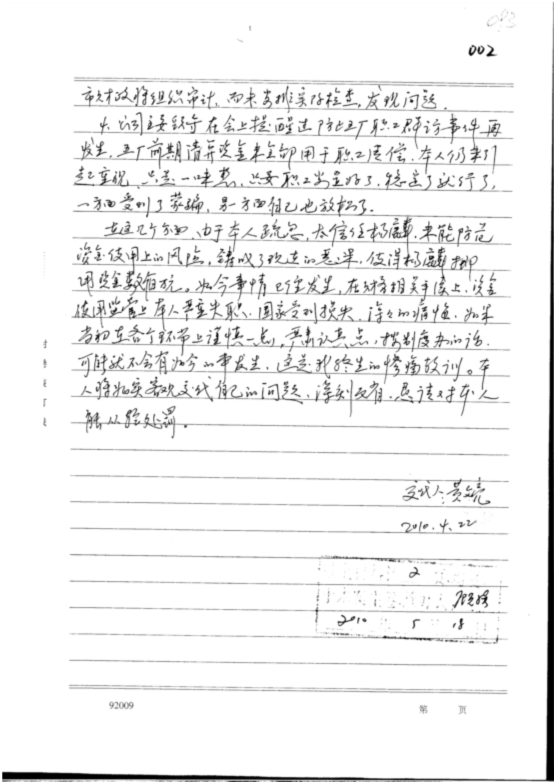 002
市财政将组织审计,而未安排实际检查,发现问题。
4、公司主要领导在会上提醒过防止五厂职工群访事件再
发生,五厂前期清算资金未全部用于职工清偿,本人仍未引
起重视,只是一味想,只要职工安置好了,稳定了就行了,
一方面受到了蒙骗,另一方面自己也放松了。
在这几个方面,由于本人疏忽,太信任杨麟,未能防范
资金使用上的风险,铸成了现在的恶果,使得杨麟挪
用资金数百万。如今事情已经发生,在财务相关手续上,资金
使用监管上本人严重失职,国家受到损失,深深的悔恨,如果
当初在各个环节上谨慎一点,严肃认真点,按制度办的话,
可能就不会有如今的事发生,这是我终生的惨痛教训。本
人将如实客观交代自己的问题,深刻,恳请对本人
能从轻处罚。
交代人:黄
2010.4.22
2
2010 5 18
92009
第 页